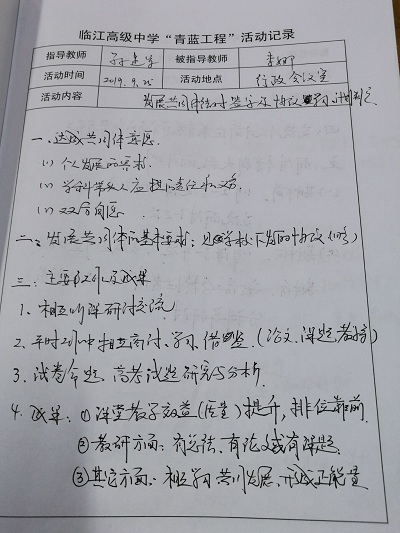 临江高级中学“青蓝工程”活动记录
指导教师 被指导教师
活动时间 2019.9.25 活动地点 行政会议室
活动内容 发展共同体结对签字及协议学习、计划制定
一、达成共同体意愿
(1) 个人发展的要求.
(2) 学科带头人应担责任和义务
(3) 双方自愿.
二、发展共同体的基本要求:见学校下发的协议(略)
三、主要工作及成果
1、相互听课研讨交流
2、平时工作中相互商讨、学习、借鉴.(论文、课题、教榜)
3、试卷命题、高考试题研究与分析.
4、成果:①课堂教学效益(质量)提升,排位靠前.
②教研方面:有总结、有论文或有课题.
③其它方面:相互学习共同发展、形成正能量